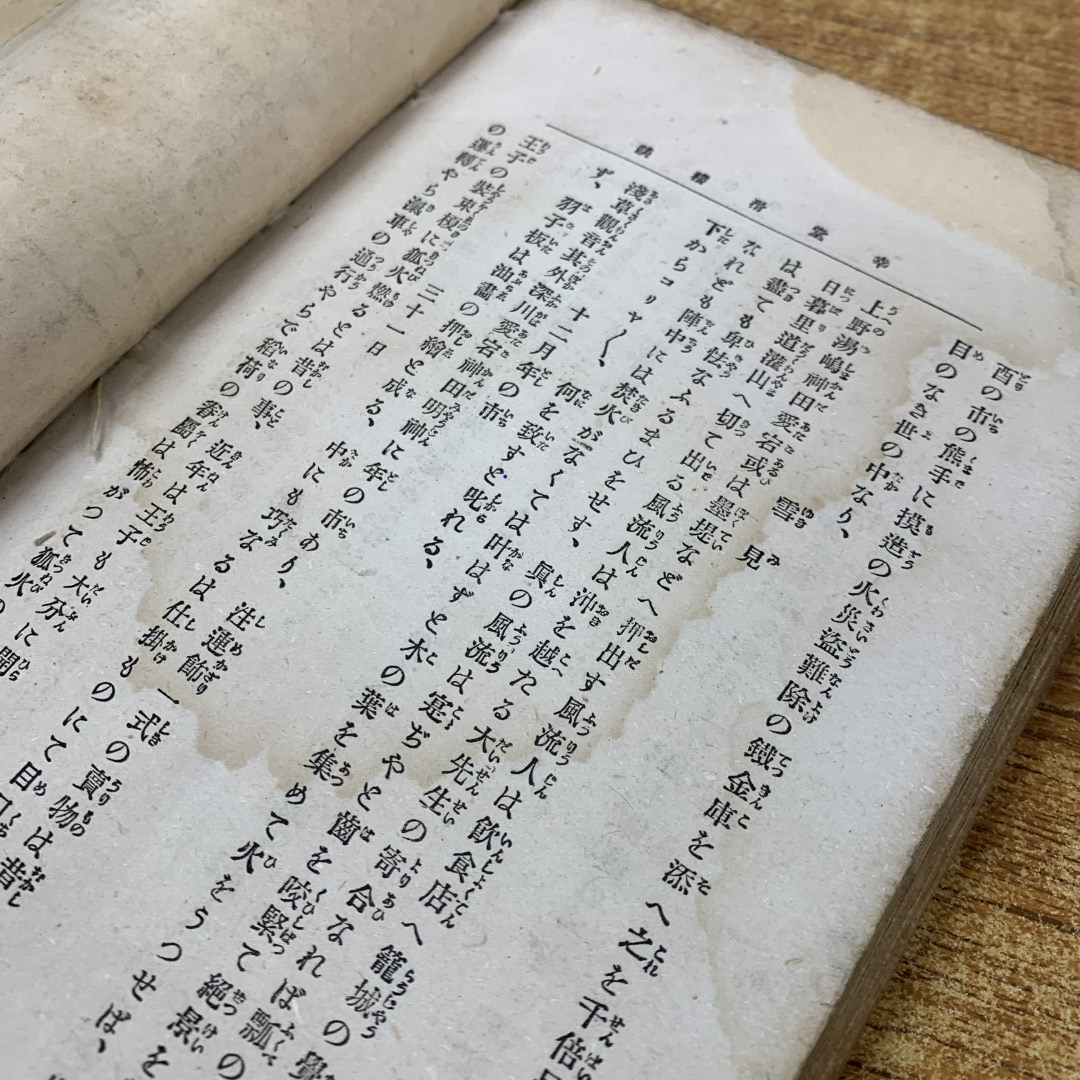 幸堂滑稽談
酉の市の熊手に摸造の火災盗難除の鐵金庫を添へ之を千倍
目のなき世の中なり、
雪見
上野湯嶋神田愛宕或は墨堤などへ押出す風流人は飲食店へ籠城の覺
日暮里道灌山へ切て出る風流人は沖を越たる大先生の寄合なれば瓢の
は盡ても卑怯なふるまひをせす、眞の風流は寔ぢやと齒を咬緊て絶景を
なれども陣中には焚火がなくては叶はずと木の葉を集めて火をうつせば、
下からコリヤ〳〵、何を致すと叱れる、
十二月年の市
淺草觀音其外深川愛宕神田明神に年の市あり、注連飾一式の賣物は昔し
ず、羽子板は油畫の押繪と成る、中にも巧みなるは仕掛ものにて目口
三十一日
王子の裝束榎に狐火燃るとは昔の事、近年は王子も大分に開
の運轉やら滊車の通行やらで稻荷の眷屬は怖がつて狐火